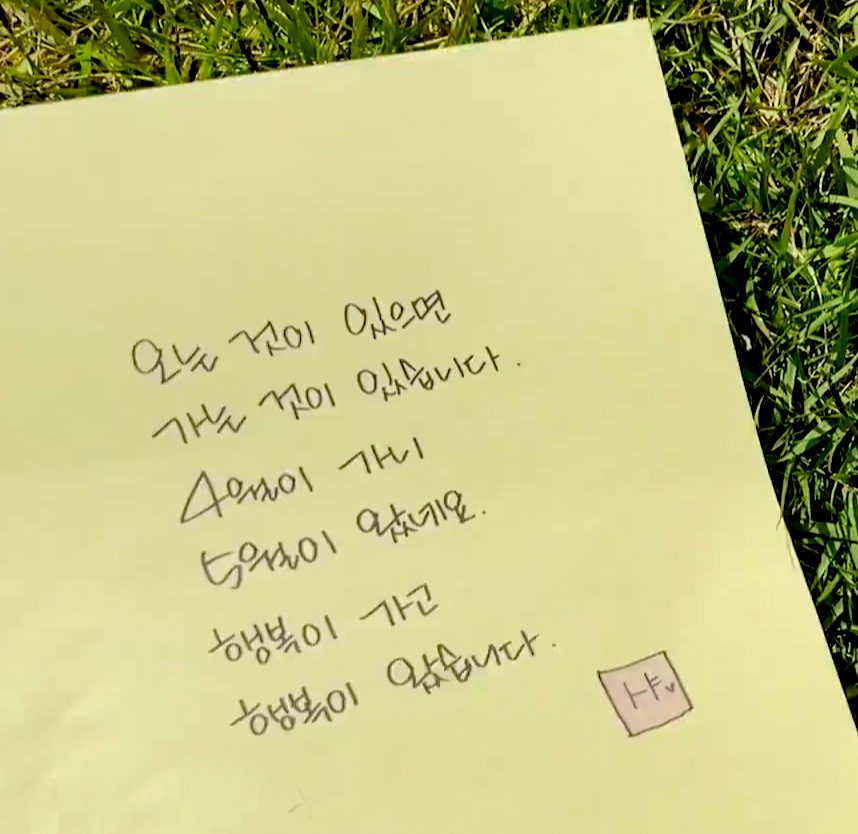 오는 것이 있으면
가는 것이 있습니다.
4월이 가니
5월이 왔네요.
행복이 가고
행복이 왔습니다.